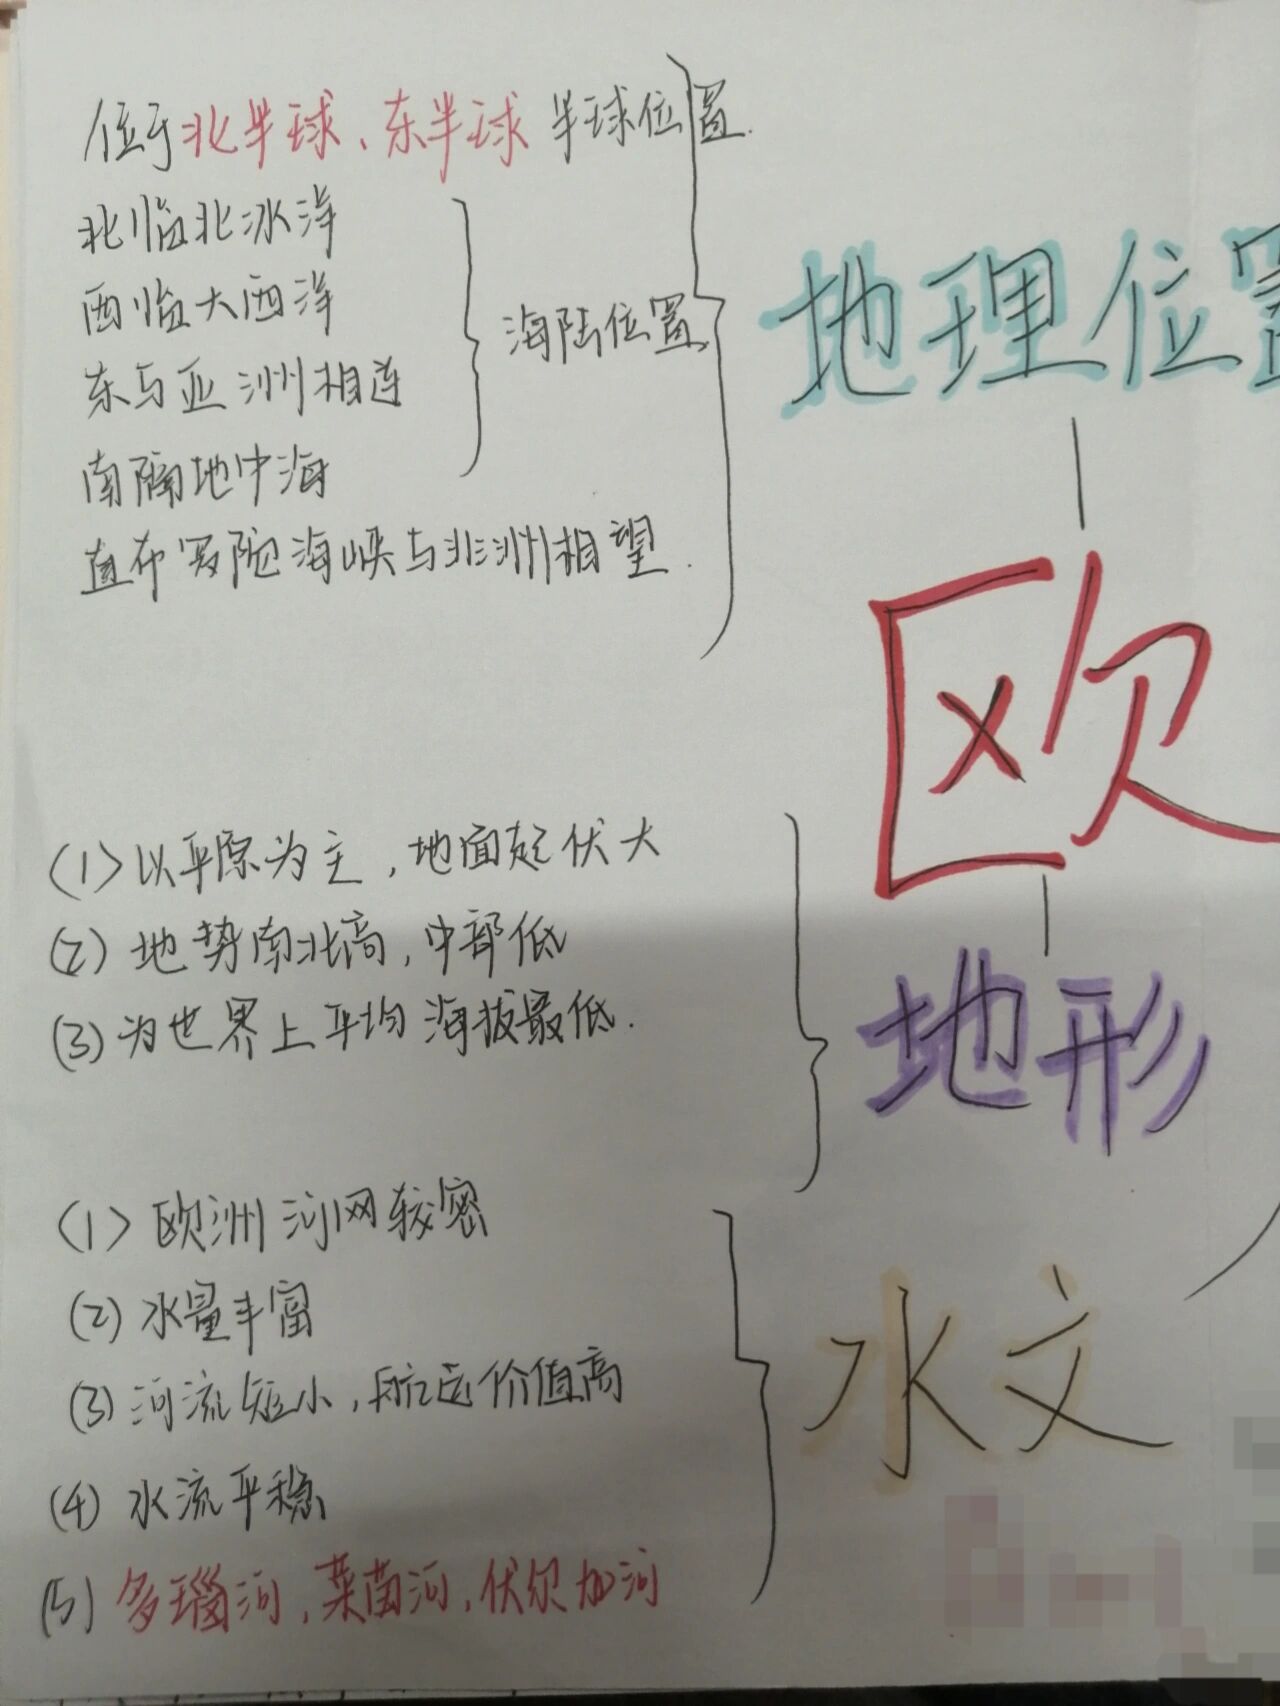 位于北半球、东半球 半球位置.
北临北冰洋
西临大西洋
东与亚洲相连
南隔地中海
直布罗陀海峡与非洲相望.
海陆位置
地理位置
欧
(1)以平原为主,地面起伏大
(2)地势南北高,中部低
(3)为世界上平均海拔最低.
地形
(1)欧洲河网较密
(2)水量丰富
(3)河流短小,航运价值高
(4)水流平稳
(5)多瑙河,莱茵河,伏尔加河
水文